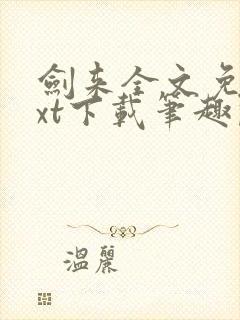 劍来全文免
xt下載筆趣
溫麗